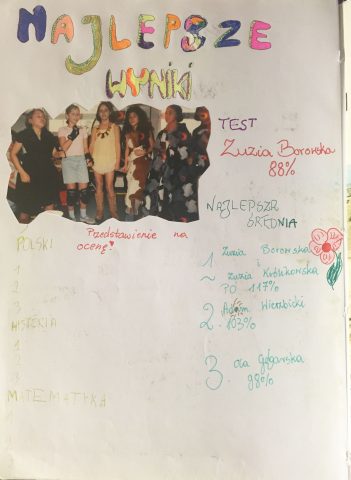 NAJLEPSZE
WYNIKI
TEST
Zuzia Borowska
88%
NAJLEPSZA
ŚREDNIA
Przedstawienie na
ocenę
1 Zuzia Borowska
i
Zuzia Królikowska
PO 117%
2. Adam Wierzbicki
103%
3. Ola
98%
POLSKI
1
2
3
HISTORIA
1
2
3
MATEMATYKA